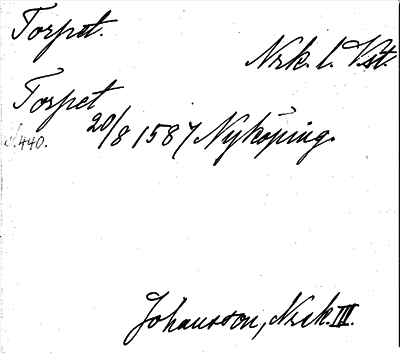 Torpet.
Nrk. l. Vst.
Torpet
20/8 1587 Nyköping.
S. 440.
Johansson, Nrck. III.